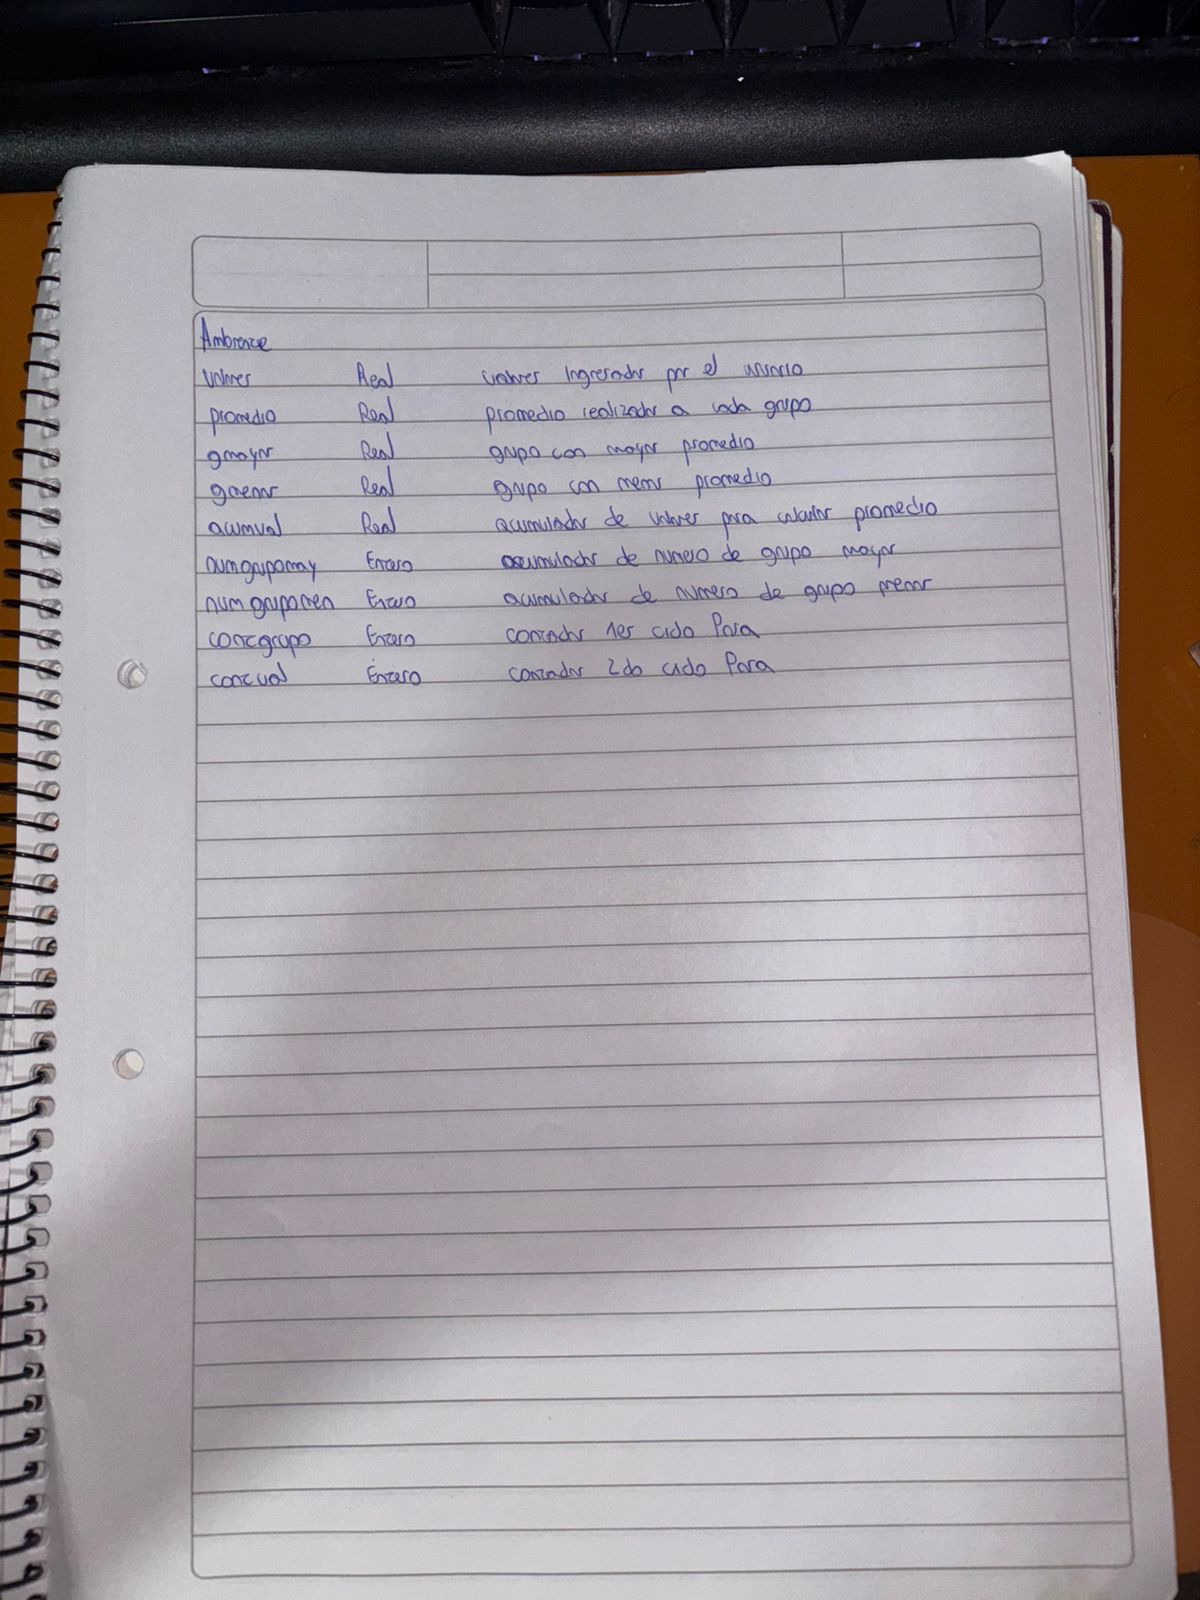 Ambiente
valores Real valores ingresados por el usuario
promedio Real promedio realizador a cada grupo
gmayor Real grupo con mayor promedio
gmenor Real grupo con menor promedio
acumval Real acumulador de valores para calcular promedio
numgrupomay Entero acumulador de numero de grupo mayor
numgrupomen Entero acumulador de numero de grupo menor
contgrupo Entero contador 1er ciclo Para
contval Entero contador 2do ciclo Para